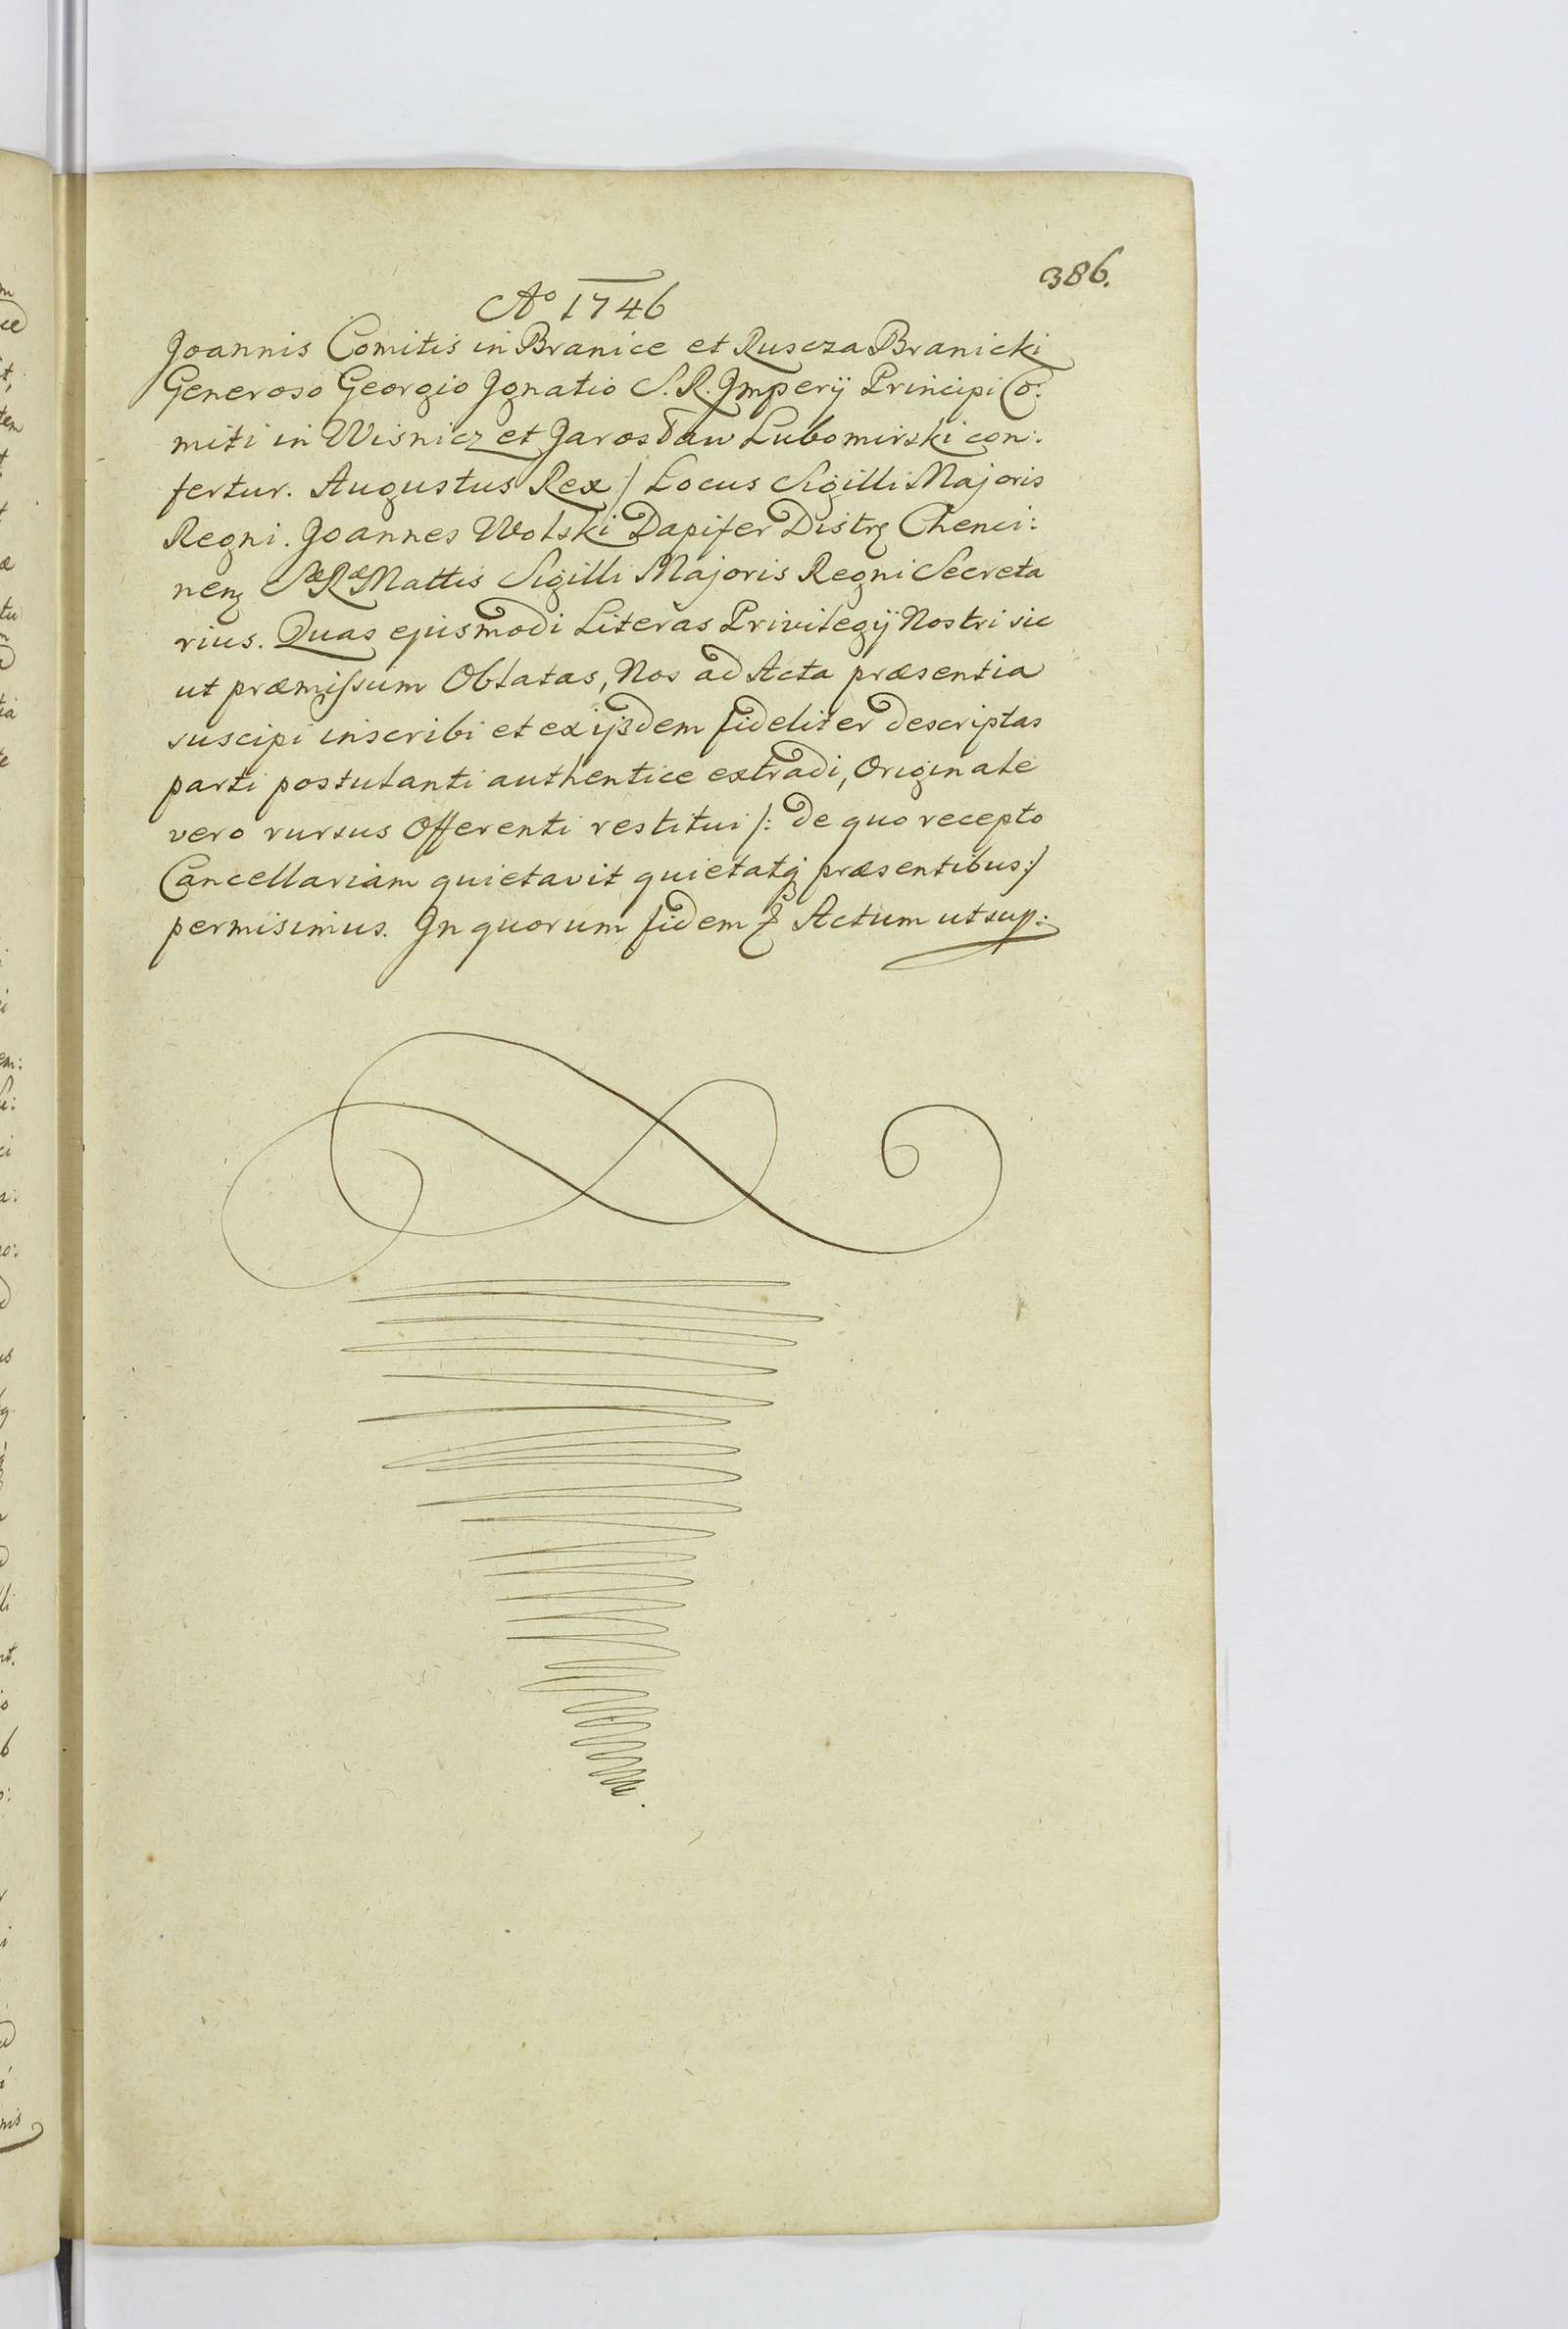 386.
Aº 1746
Joannis Comitis in Branice et Ruscza Branicki
Generoso Georgio Ignatio S. R. Imperij Principi Co:
miti in Wisnicz et Jarosław Lubomirski con:
fertur. Augustus Rex / Locus Sigilli Majoris
Regni. Joannes Wolski Dapifer Distrꝫ Chenci:
nenꝫ SæRæMattis Sigilli Majoris Regni Secreta
rius. Quas ejusmodi Literas Privilegij Nostri sic
ut præmissum Oblatas, Nos ad Acta præsentia
suscipi inscribi et ex ijsdem fideliter descriptas
parti postulanti authentice extradi, Originale
vero rursus Offerenti restitui /: de quo recepto
Cancellariam quietavit quietatqꝫ præsentibus :/
permisimus. In quorum fidem & Actum ut sup: